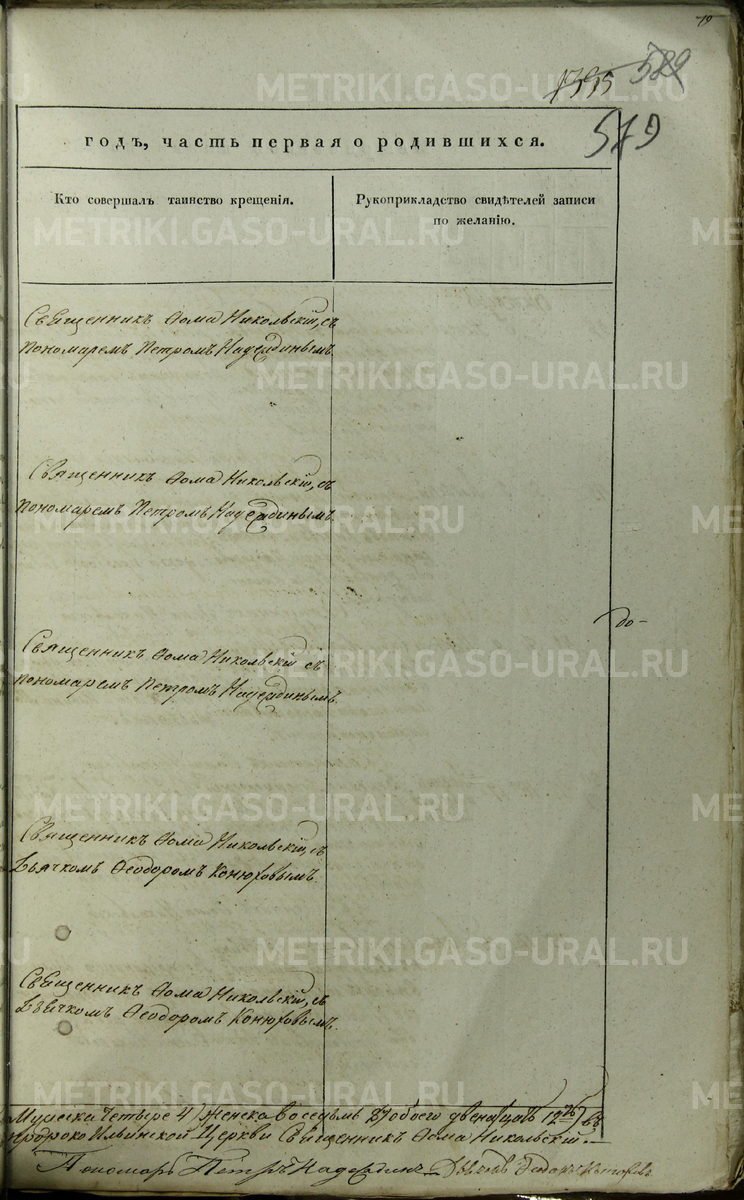 79
1395 589
579
годъ, часть первая о родившихся.
Кто совершалъ таинство крещенія.
Рукоприкладство свидѣтелей записи
по желанію.
Священникъ Ѳома Никольскій, съ
пономаремъ Петромъ Надеждинымъ.
Священникъ Ѳома Никольскій, съ
пономаремъ Петромъ Надеждинымъ.
до-
Священникъ Ѳома Никольскій съ
пономаремъ Петромъ Надеждинымъ.
Священникъ Ѳома Никольскій, съ
Дьячкомъ Ѳеодоромъ Конюховымъ.
Священникъ Ѳома Никольскій, съ
Дьячкомъ Ѳеодоромъ Конюховымъ.
Мужеска четыре 4 / Женска восемь 8 / обоего двенадцать 12
пророко Ильинской Церкви Священникъ Ѳома Никольскій.
Пономарь Петръ Надеждинъ
METRIKI.GASO-URAL.RU